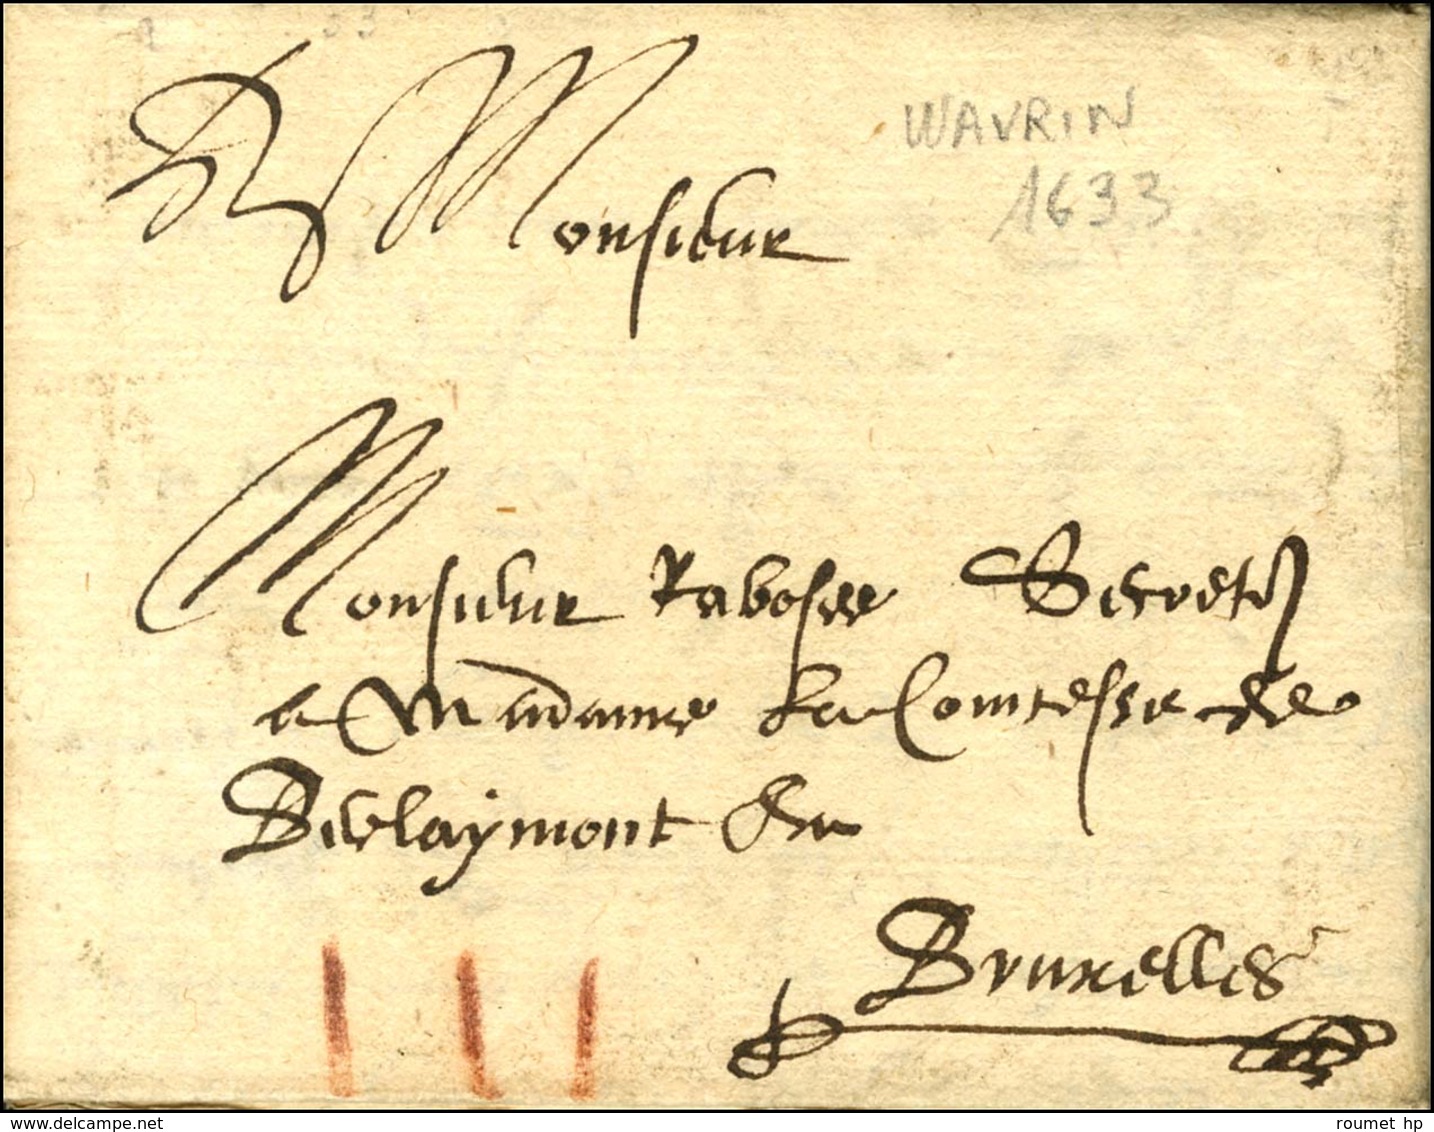 A Monsieur
WAVRIN
1633
Monsieur Rabosee Secret
a Madame la Comtesse de
Berlaymont En
Bruxelles
III
delcampe.net
roumet hp